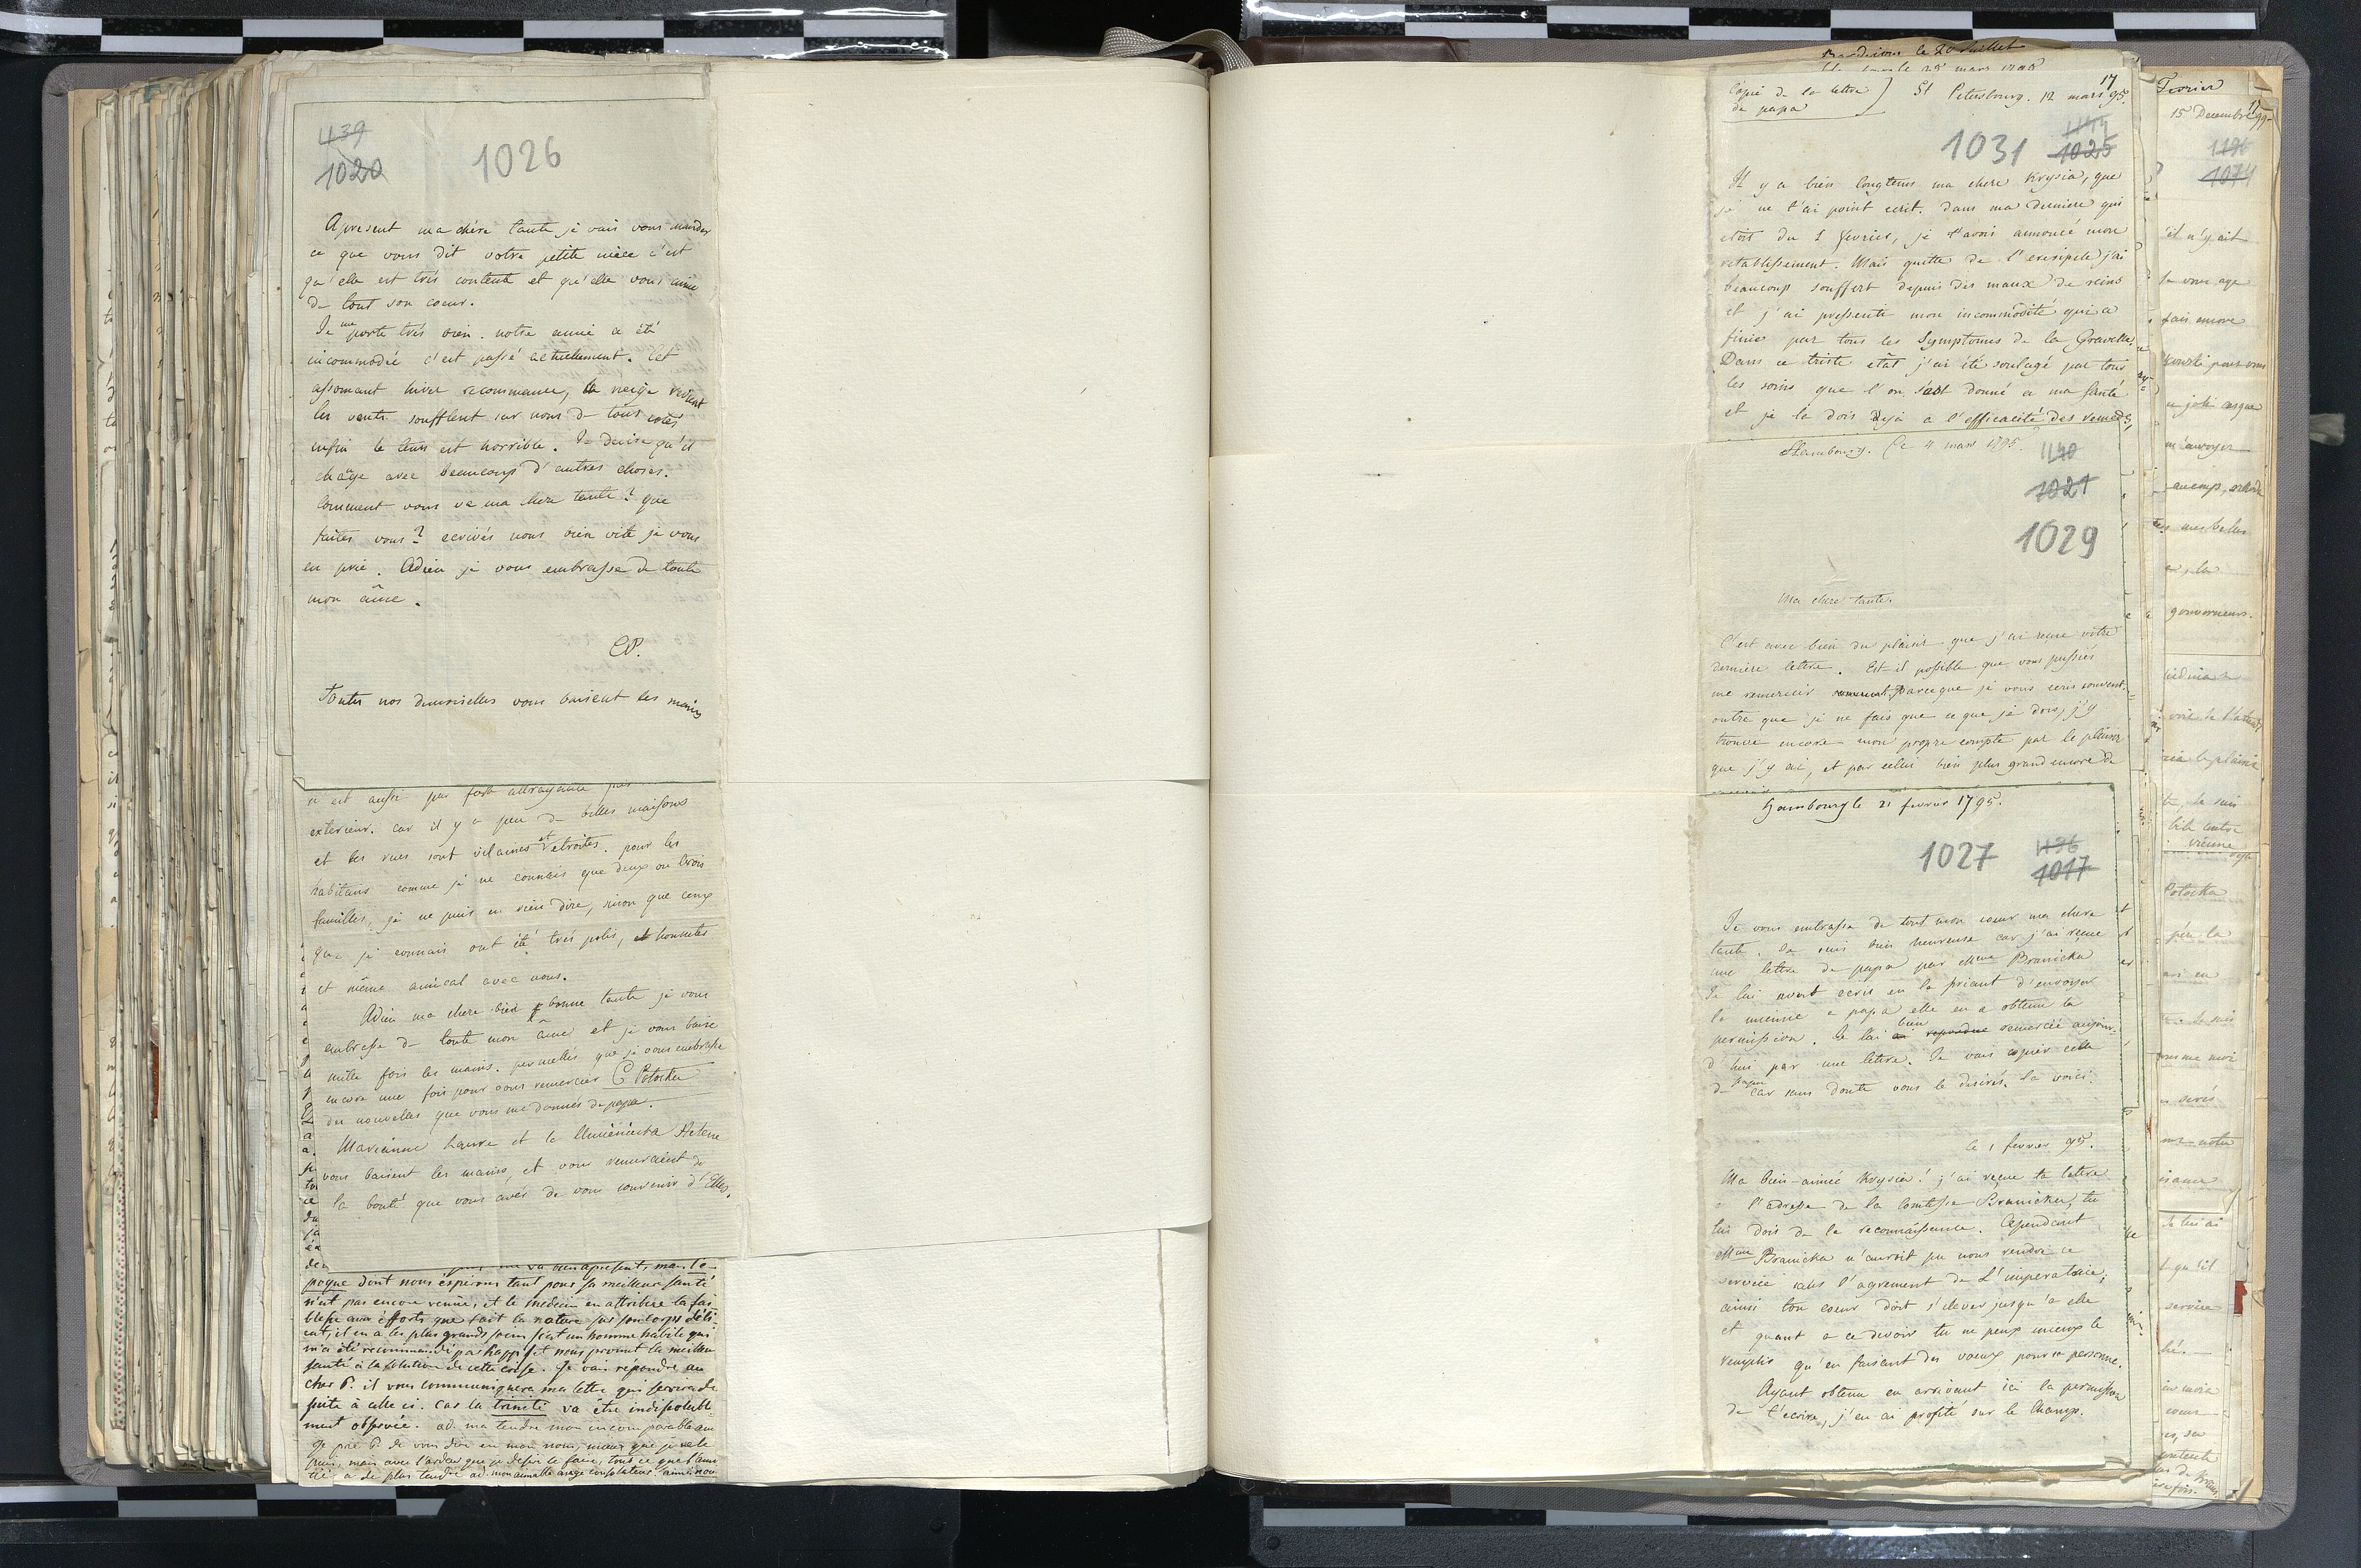 439
1020
1026
Apresent ma chère tante je vais vous mander
ce que vous dit votre petite nièce c'est
qu'elle est très contente et qu'elle vous aime
de tout son coeur.
Je me porte très bien. notre amie a été
incommodée c'est passé actuellement. Cet
assomant hiver recommence, la neige revient
les vents soufflent sur nous de tous cotés
enfin le tems est horrible. Je desire qu'il
change avec beaucoup d'autres choses.
Comment vous va ma chere tante? que
faites vous? ecrivés nous bien vite je vous
en prie. Adieu je vous embrasse de toute
mon âme.
CP.
Toutes nos demoiselles vous baisent les mains
n est aussi pas fort attrayante
exterieur. car il y a peu de belles maisons
et les rues sont vilaines et etroites. pour les
habitans comme je ne connais que deux ou trois
familles, je ne puis en rien dire, sinon que ceux
que je connais ont été très polis, et honnetes
et même amical avec nous.
Adieu ma chere bien bonne tante je vous
embrasse de toute mon âme et je vous baise
mille fois les mains. permettés que je vous embrasse
encore une fois pour vous remercier C Potocka
des nouvelles que vous me donnés de papa.
Marianne Laure et la Helene
vous baisent les mains, et vous remercient de
la bonté que vous avés de vous souvenir d'Elles.
va bien apresent, mais l'é-
poque dont nous éspérons tant pour sa meilleure santé
n'est pas encore venüe, et le medecin en attribue la fai
blesse aux éfforts que fait la nature sur son corps déli
cat, il en a les plus grands soins c'est un homme habile qui
m'a été recommandé par happ, et nous promet la meilleu
santé à la solution de cette crise. Je vais répondre au
cher P. il vous communiquera ma lettre qui servira de
suite à celle ci. Car la trinité va être indissoluble
ment observée. ad. ma tendre mon incomparable am
Je prie P. de vous dire en mon nom, mieux que je ne le
puis, mais avec l'ardeur que je desire le faire, tout ce que l'ami
tié a de plus tendre ad. mon aimable ange consolateur.
le 20 Juillet
mars
Copie de la lettre
de papa
St Petersbourg. 12 mars 1795.
1031
1144
1025
Il y a bien longtems ma chere Krysia, que
je ne t'ai point ecrit. dans ma derniere qui
etoit du 1 fevrier, je t'avois annoncé mon
retablissement. Mais quitte de l'eresipele j'ai
beaucoup souffert depuis des maux de reins
et j'ai pressenti mon incommodité qui a
finie par tous les Symptomes de la Gravelle.
Dans ce triste état j'ai été soulagé par tous
les soins que l'on s'est donné a ma santé
et je la dois deja a l'efficacité des remedes,
Hambourg. Ce 4 mars 1795.
1140
1021
1029
Ma chere tante.
C'est avec bien du plaisir que j'ai recue votre
derniere lettre. Est il possible que vous pussiés
me remercier parceque je vous ecris souvent.
outre que je ne fais que ce que je dois, j'y
trouve encore mon propre compte par le plaisir
que j'y ai, et par celui bien plus grand encore de
Hambourg le 21 fevrier 1795.
1027
1136
1017
Je vous embrasse de tout mon coeur ma chere
tante. Je suis bien heureuse car j'ai recue
une lettre de papa par Mme Branicka
Je lui avait ecris en la priant d'envoyer
la mienne a papa elle en a obtenu la
permission. Je l'ai bien remercié aujour-
d'hui par une lettre. Je vais copier celle
de papa car sans doute vous le desirés. la voici.
le 1 fevrier 95.
Ma bien-aimée Krysia! j'ai reçue ta lettre
a l'adresse de la Comtesse Branicka, tu
lui dois de la reconnaissance. Cependant
Mme Branicka n'auroit pu nous rendre ce
service sans l'agrement de L'imperatrice,
ainsi ton coeur doit s'elever jusqu'a elle
et quant a ce devoir tu ne peux mieux le
remplir qu'en faisant des voeux pour sa personne.
Ayant obtenu en arrivant ici la permission
de t'ecrire, j'en ai profité sur le champ.
Fevrier
15 Decembre
1196
1074
il n'y ait
fais encore
pour vous
un joli casque
m'envoyer
mes belles
gouverneurs.
Potocka
je suis
comme moi
qu'il
service
Je lui ai
coeur